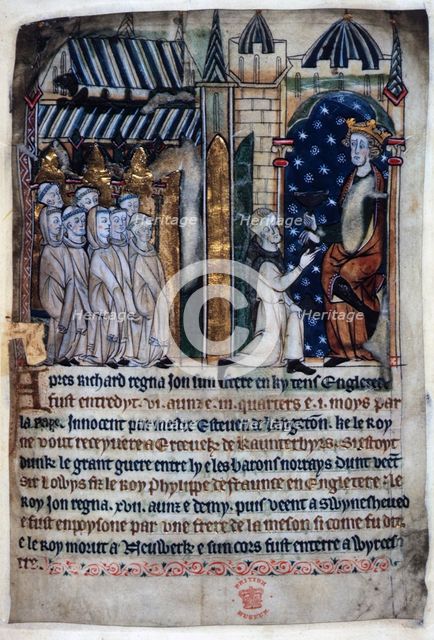 Apres Richard regna Jon sun frere en ky tens Engletere
fust entredyt .vi. aunz e .iii. quarters e .i. moys par
la pape Innocent pur mestre Estevene de Langeton. ke le Roy
ne vout receyvere a Erceveske de Kaunterbyrs. Si sroyt
dunke le grant guere entre ly e les barons norrays dunt veent
Sir Lowys fiz le Roy Phylipe de Fraunce en Engletere. le
Roy Jon regna .xvii. aunz e demy. puis veent a Swyneshened
e fust enpoysone par une frere de la meson si come fu dit
e le Roy morut a Neuwerk e sun cors fust enterre a Wyrces-
tre.
BRITISH
MUSEUM
Heritage
Heritage
Heritage
Heritage